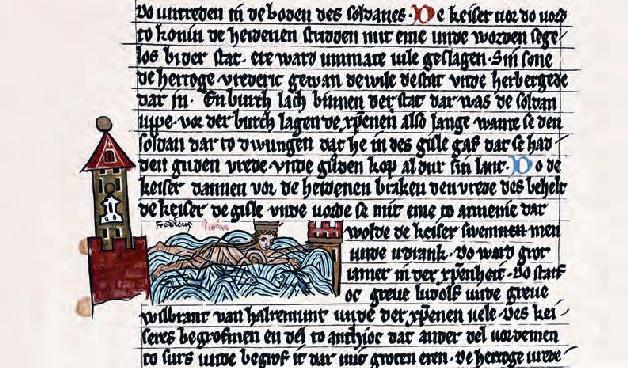 Do untreden in de boden des soldanes. De keiser vor do vord
to konin de heidenen stridden mit eme unde worden sege
los bi der stat. ere ward unmate vile geslagen. Sin sone
de hertoge vrederic gewan de wile de stat unde herbergede
dar in. En burch lach binnen der stat dar was de soldan
uppe. vor der burch lagen de xpenen also lange wante se den
soldan dar to dwungen dat he in des gisle gaf dat se had
den guden vrede. unde guden kop al dur sin lant. Do de
keiser dannen vor de heidenen braken den vrede des behelt
de keiser de gisle unde vorde se mit eme to armenie dar
wolde de keiser swemmen
unde udrank. Do ward grot
iamer in der xpenheit. Do starf
oc greve ludolf unde greve
wilbrant van halremunt unde der xpenen vele. Des kei
seres begrofmen en del to anthioc dat ander del vordemen
to surs unde begrof it dar mit groten eren. De hertoge vrede